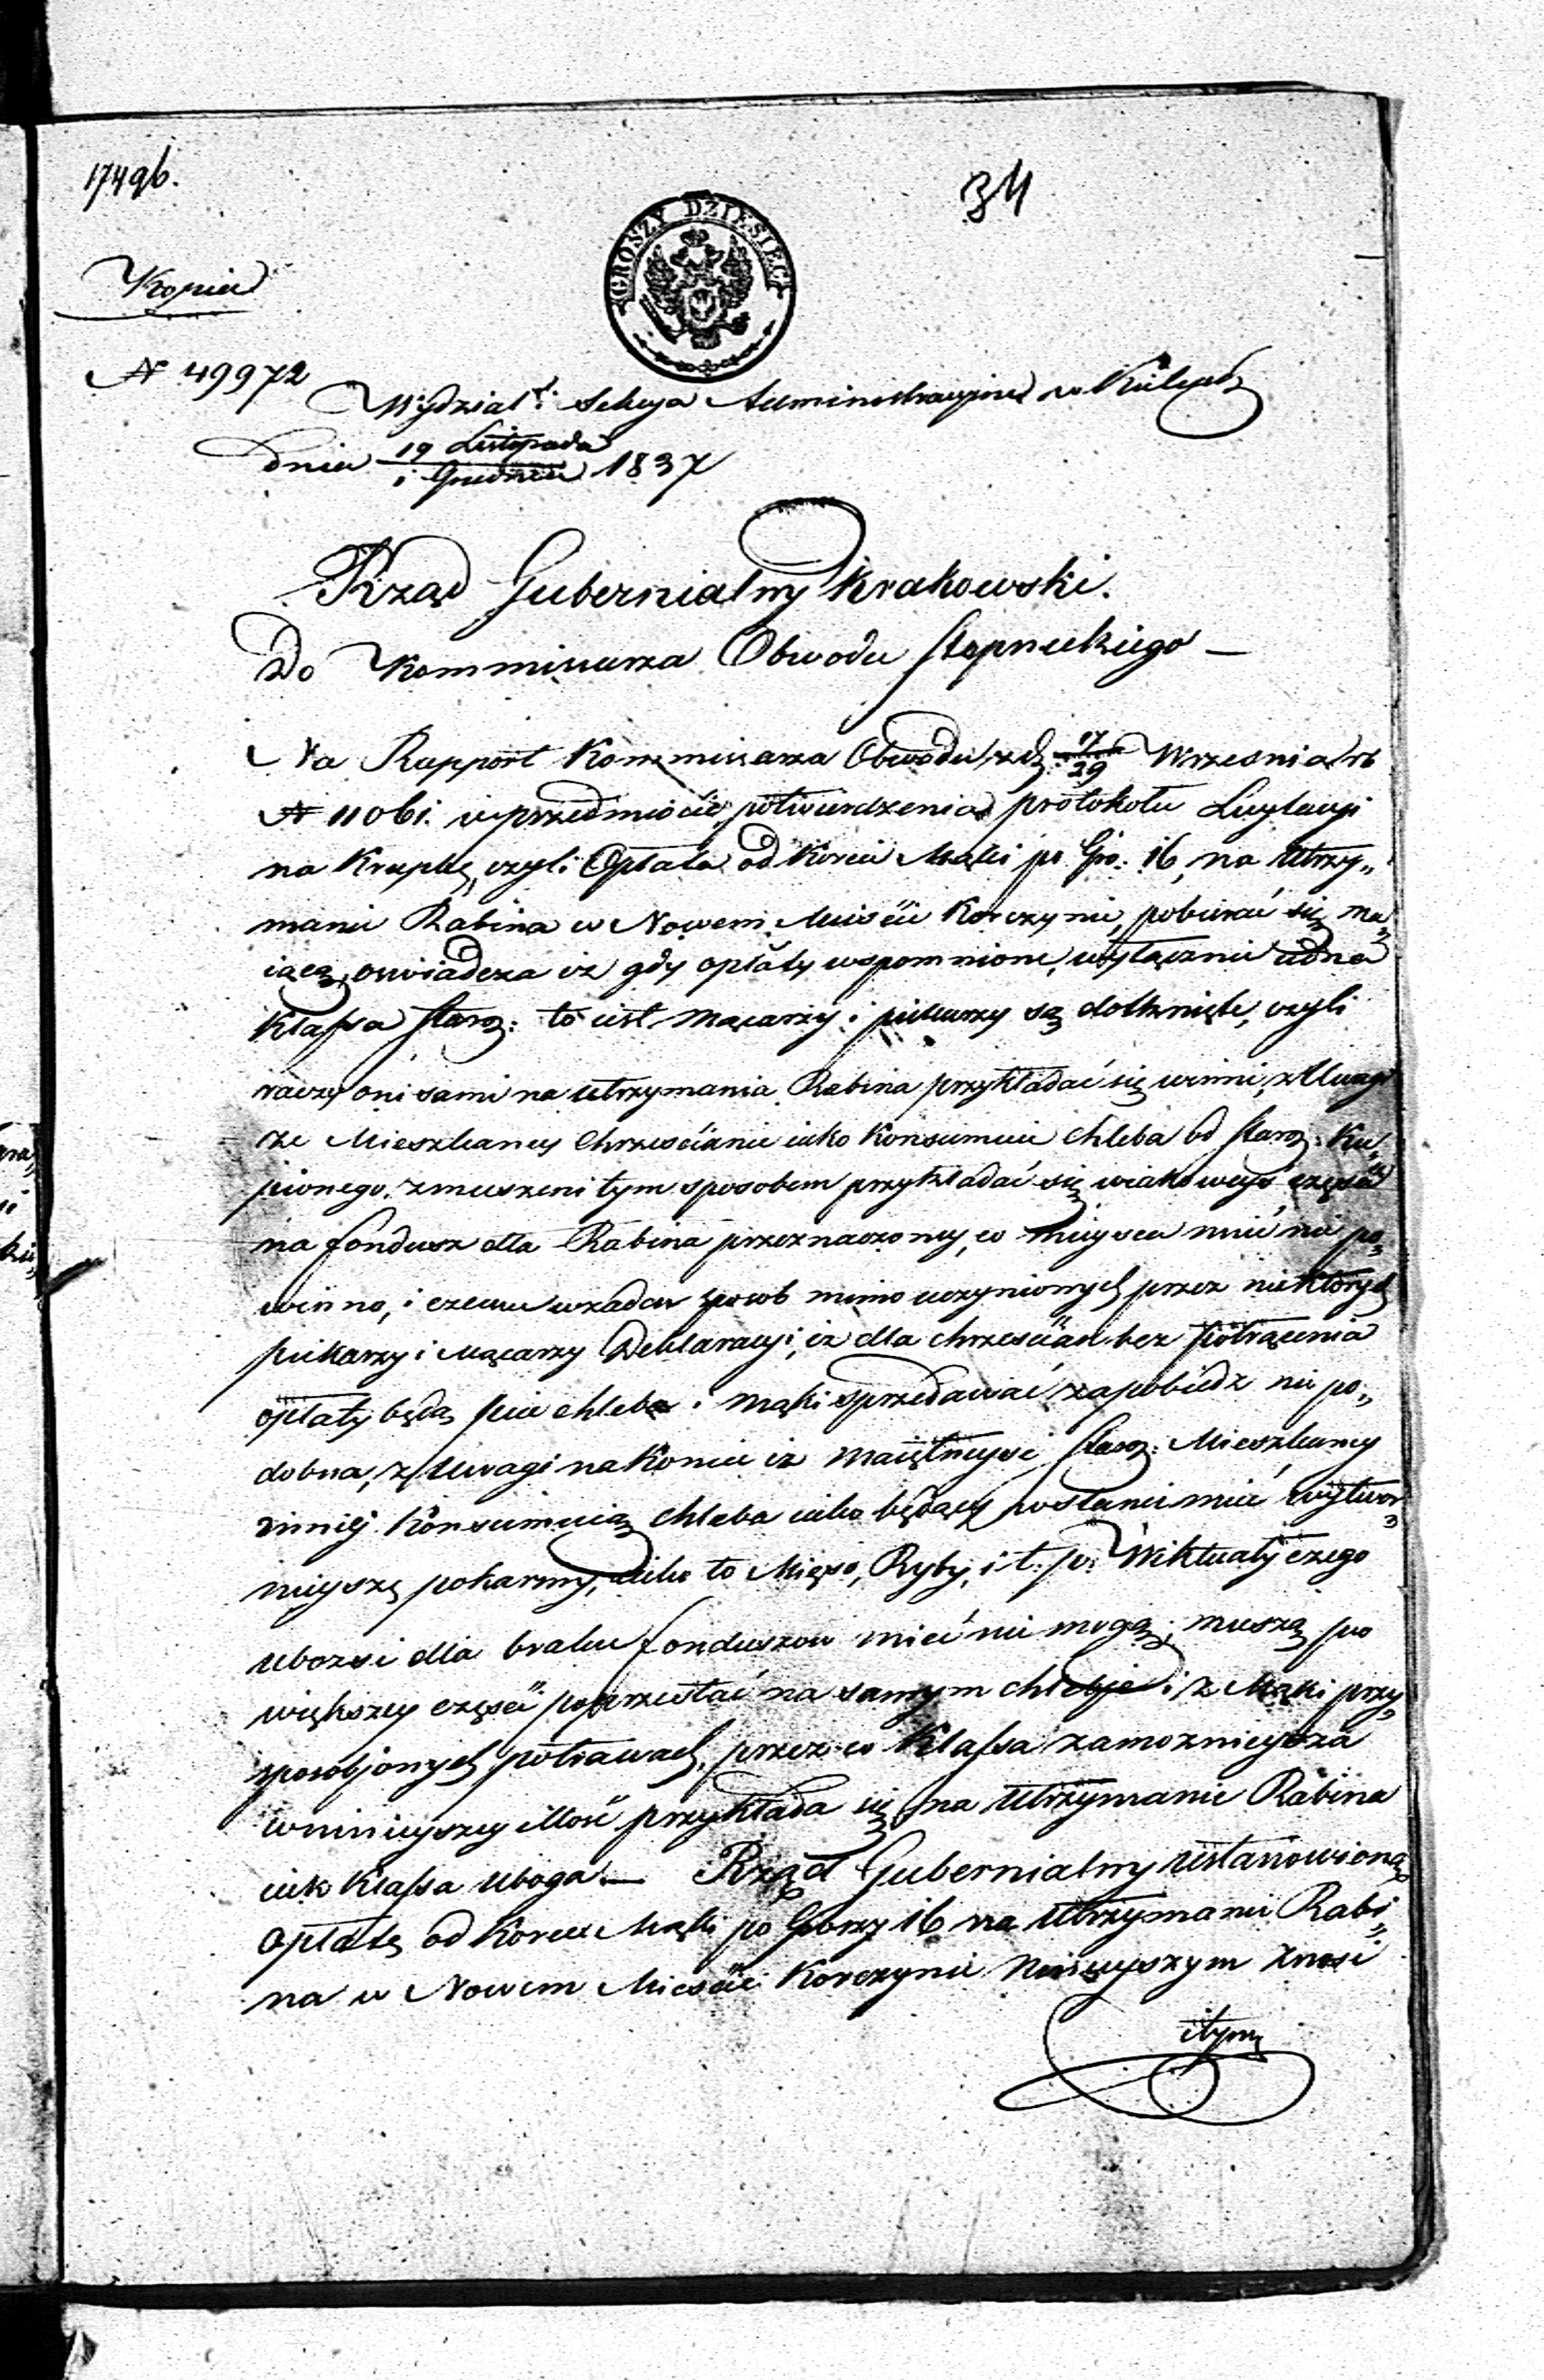 17496.
34
GROSZY DZIESIĘĆ
Kopia
N 49972
Wydział: Sekcya Administracyjna w Kielcach
dnia 19 Listopada
1 Grudnia 1837
Rząd Gubernialny Krakowski.
Do Kommissarza Obwodu Stopnickiego —
Na Rapport Kommissarza Obwodu z d. 17/29 Wrzesnia rb
N 11061. w przedmiocie potwierdzenia protokołu Licytacyi
na Krupkę, czyli Opłata od Korca Mąki po Gro: 16, na Utrzy„
manie Rabina w Nowem Mieście Korczynie, pobierać się ma„
iącą, oswiadcza iż gdy opłaty wspomnione, wyłącznie iedna
Klassa Staroz: to iest Mącarzy i piekarzy są dotknięte, czyli
raczy oni sami na utrzymania Rabina przykładać się winni, z Uwagi
że Mieszkancy Chrześcianie iako Konsumuie chleba od Staroz: Ku„
pionego, zmuszeni tym sposobem przykładać się w iakoweyś części
na fondusz dla Rabina przeznaczony, co mieysca mieć nie po„
winno, i czemu w żaden sposob mimo uczynionych przez niektorych
piekarzy i Mącarzy Deklaracyi, iż dla chrześcian bez potrącenia
opłaty będą piec chleba i mąki sprzedawać zapobiedz nie po„
dobna, z Uwagi nakoniec iż maiętnieysi Staroz: Mieszkancy
mniej Konsumuią chleba iako będący w stanie mieć wytwor„
nieyszę pokarmy, iako to Mięso, Ryby, i t. p. Wiktuały czego
ubozsi dla braku fonduszow mieć nie mogą, muszą po
większey części poprzestać na samym chlebie i z Mąki przy„
sposobjonych potrawach, przez co Klassa zamoznieysza
w mnieyszey ilość przykłada się na Utrzymanie Rabina
iak Klassa uboga — Rząd Gubernialny ustanowioną
opłatę od Korca Mąki po Groszy 16 na Utrzymanie Rabi„
na w Nowem Mieście Korczynie Nieinieyszym znosi
i tym